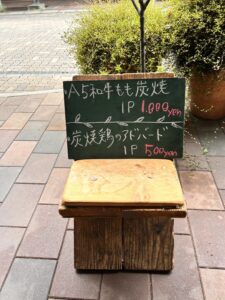 ・A5和牛もも炭焼
1P 1,000yen
・炭焼鶏のアドバード
1P 500yen